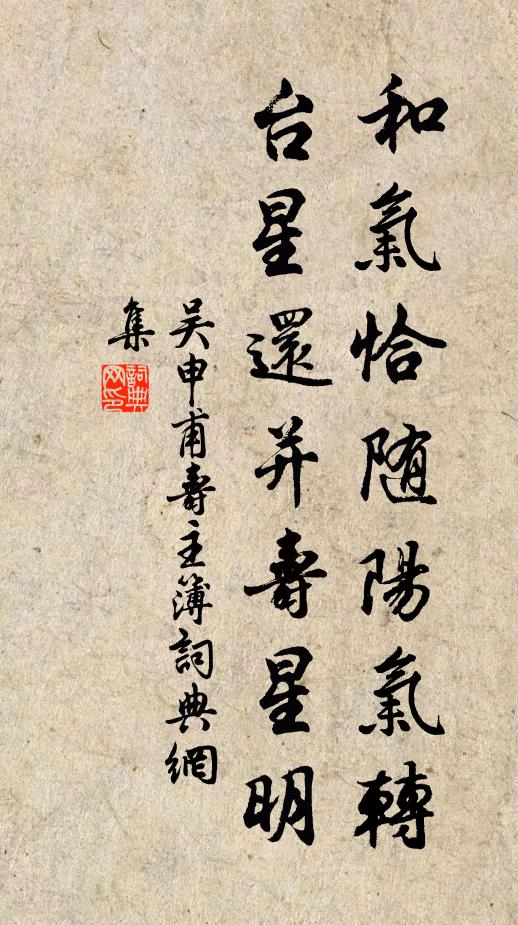 和氣恰随陽氣轉
台星還并壽星明
吴申甫壽主簿詞典網
集
詞典
网印